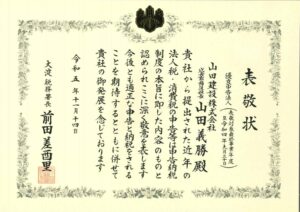 表敬状
山田建設株式会社
山田義勝殿
貴社から提出された近年の
法人税・消費税の申告等は申告納税
制度の本旨に即した内容のものと
認められここに深く敬意を表します
今後とも適正な申告と納税をされる
ことを期待するとともに併せて
貴社の御発展を念じております
令和五年十一月十四日
大渡税務署長